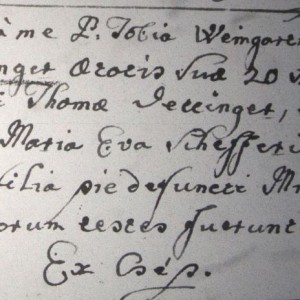 à me P. Tobia Weingart
inger Ætatis suæ 20
Thomæ Derringer,
Maria Eva Schefferi
filia pie defuncti M
orum testes fuerunt
Ex Csép.